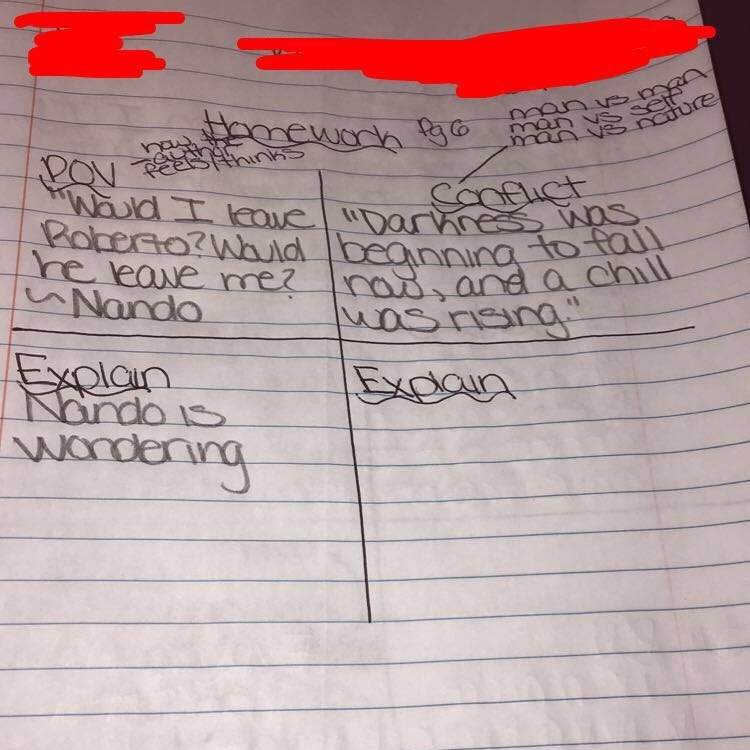 Homework Pg 6
man vs man
man vs self
man vs nature
POV
how the
author
feels/thinks
"Would I leave
Roberto? Would
he leave me?
~Nando
Conflict
"Darkness was
beginning to fall
now, and a chill
was rising."
Explain
Nando is
wondering
Explain